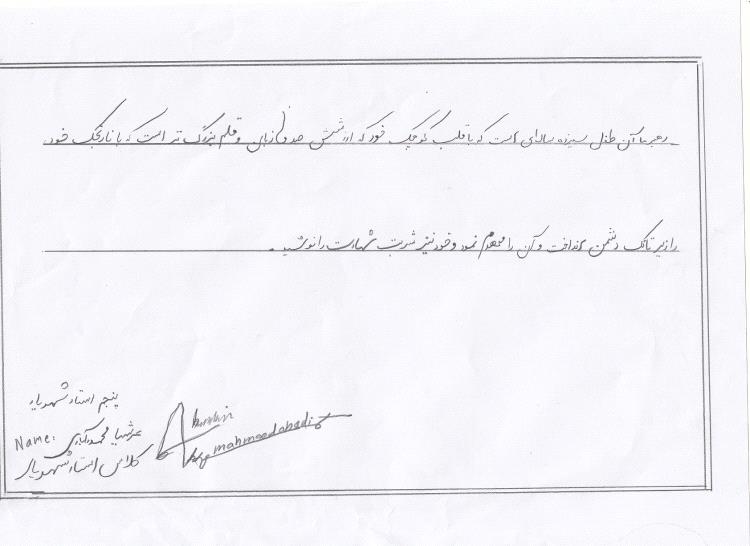 رهبر ما آن طفل سیزده ساله‌ای است که با قلب کوچک خود که ارزشش صدها زبان و قلم بزرگ تر است که با نارنجک خود
را زیر تانک دشمن انداخت و آن را منهدم نمود و خود نیز شربت شهادت را نوشید .
پنجم استاد شهریار
Name: عرشیا محمودآبادی
کلاس استاد شهریار
mahmoodabadi